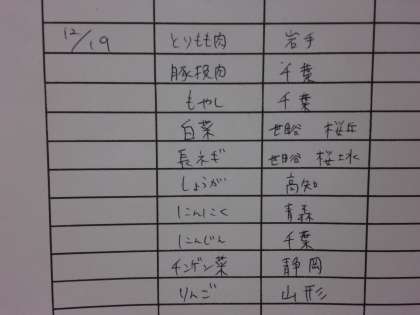 12/19 とりもも肉 岩手
豚挽肉 千葉
もやし 千葉
白菜 世田谷 桜丘
長ネギ 世田谷 桜上水
しょうが 高知
にんにく 青森
にんじん 千葉
チンゲン菜 静岡
りんご 山形